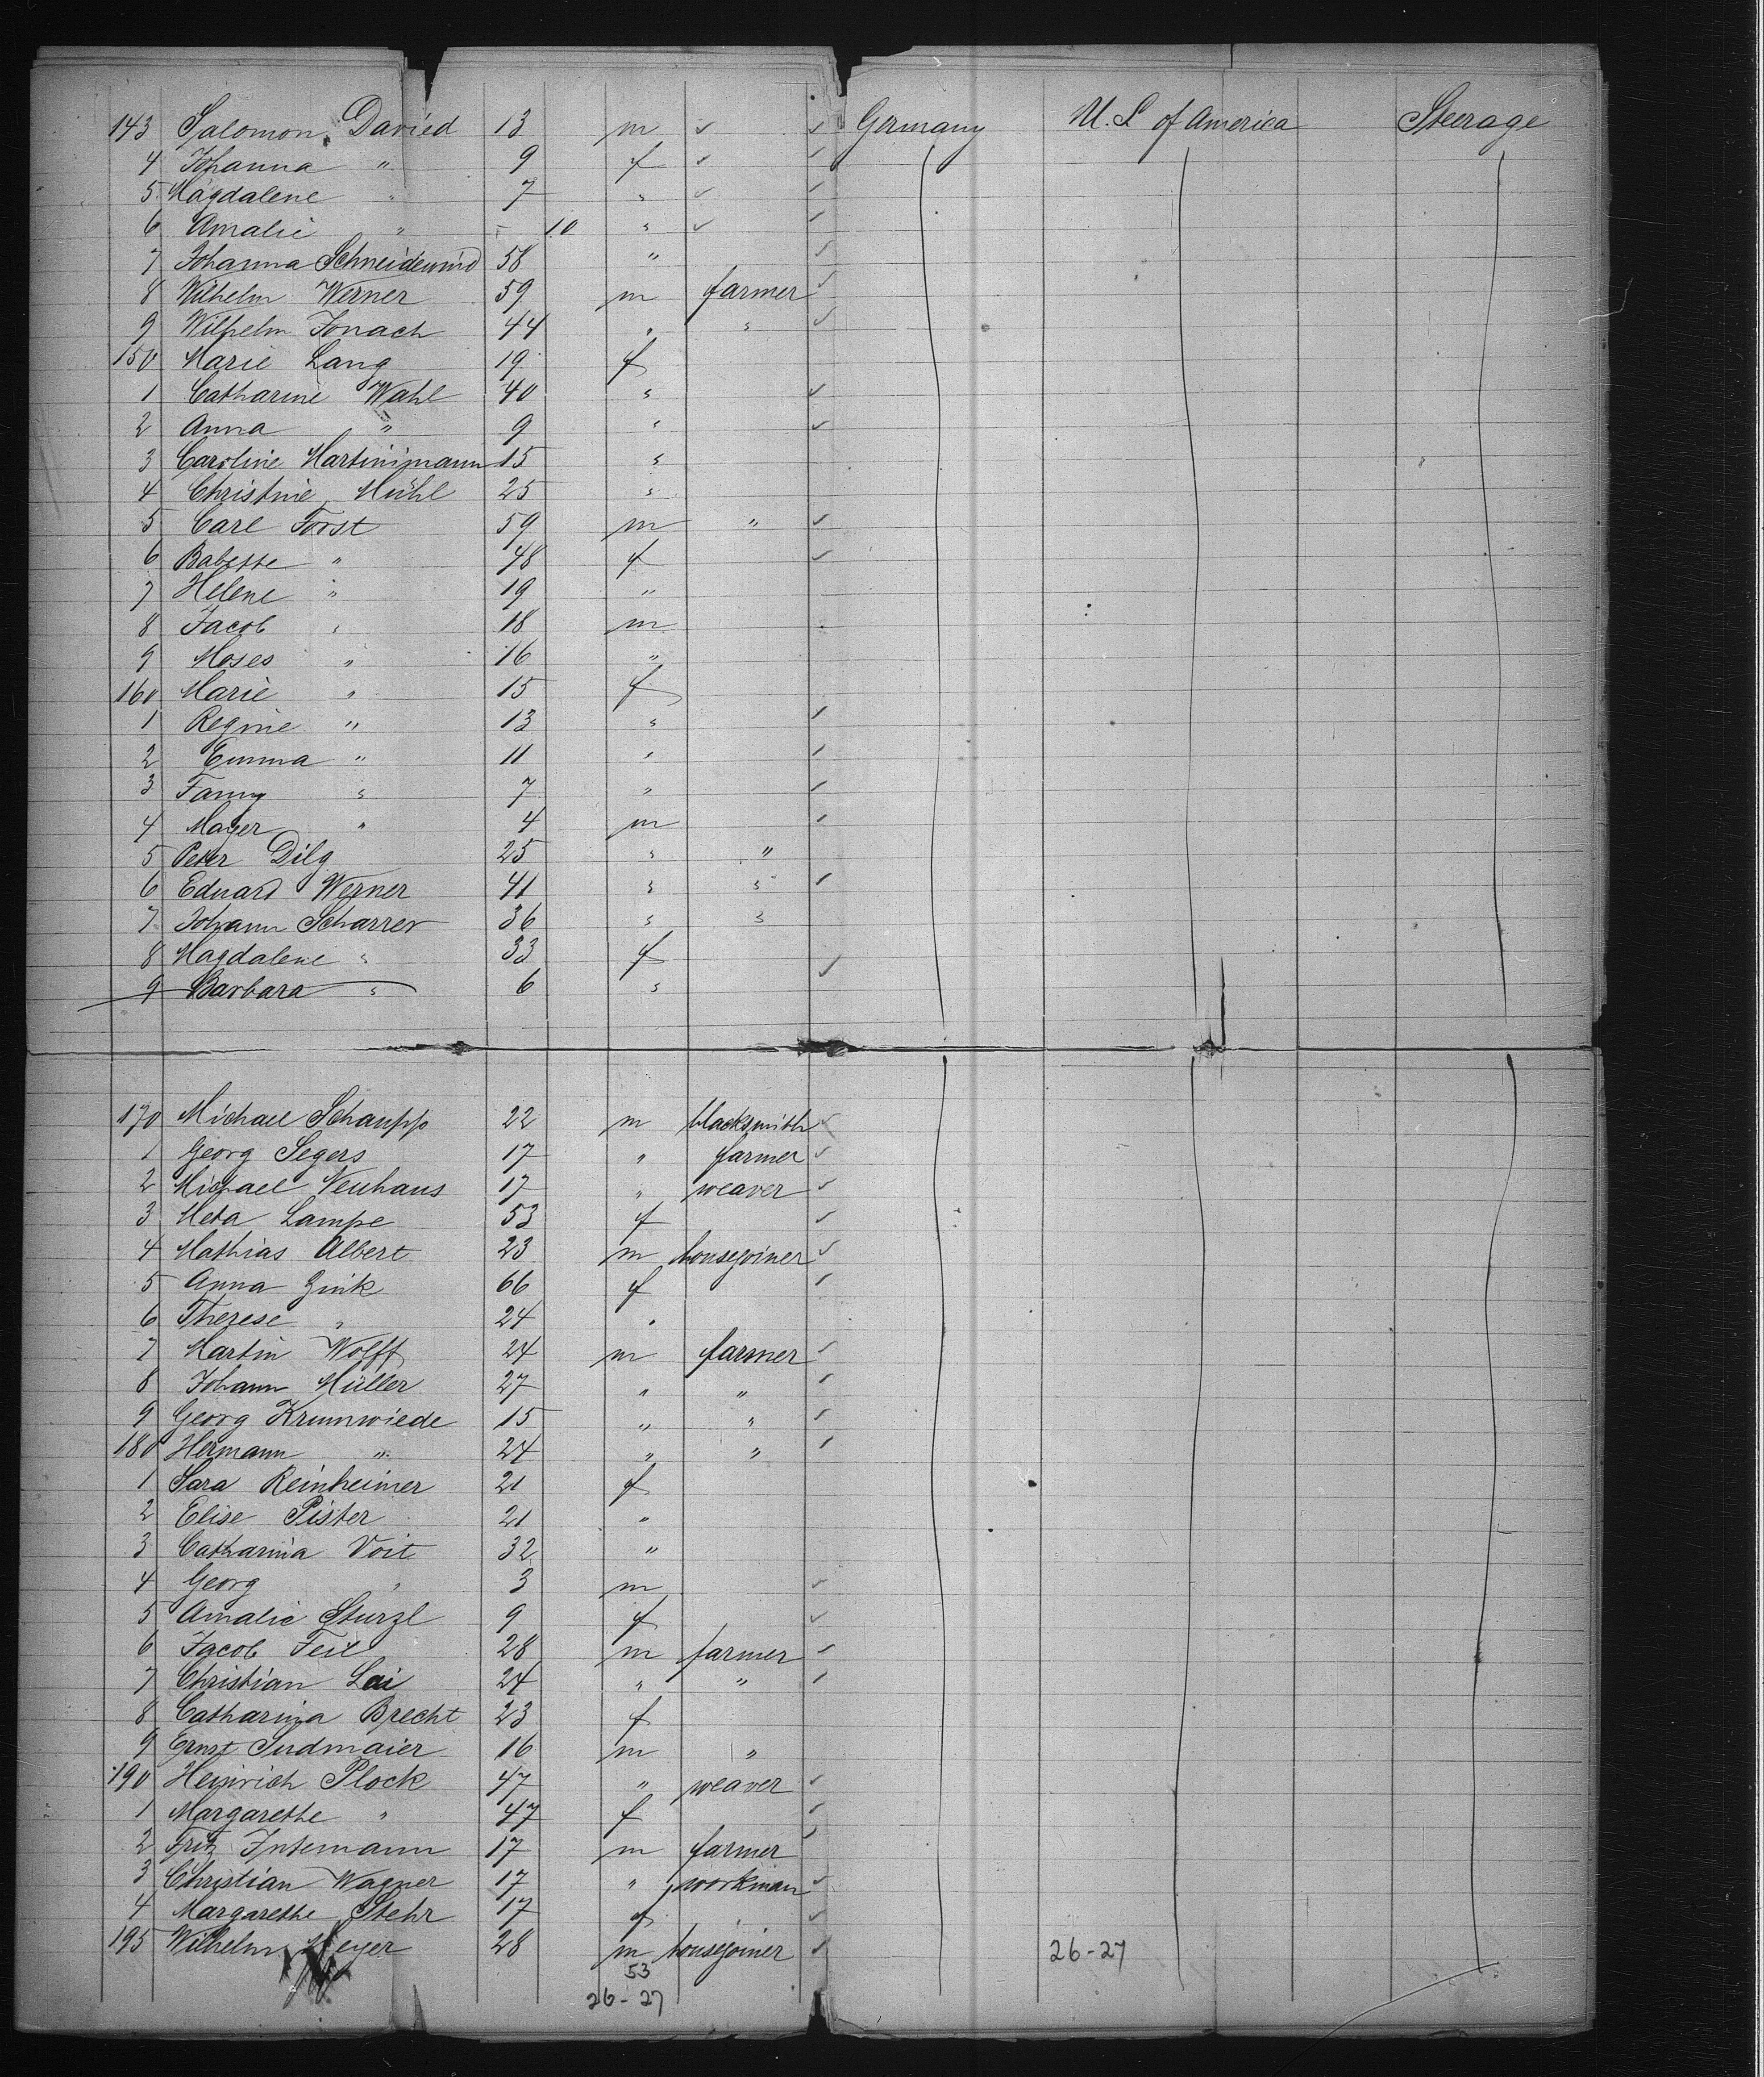 143 Salomon Davied 13 m ✓ ✓ Germany U.S of America Steerage
4 Johanna " 9 f ✓ ✓
5 Magdalene " 7 " ✓ ✓
6 Amalie " - 10 " ✓ ✓
7 Johanna Schneidewind 58 " ✓
8 Wilhelm Werner 59 m farmer ✓
9 Wilhelm Jonach 44 " " ✓
150 Marie Lang 19 f
1 Catharine Wahl 40 " ✓
2 Anna " 9 " ✓
3 Caroline Martinimann 15 "
4 Christine Mühl 25 "
5 Carl Forst 59 m " ✓
6 Babette " 48 f ✓
7 Helene " 19 "
8 Jacob " 18 m
9 Moses " 16 "
160 Marie " 15 f
1 Regine " 13 " ✓
2 Emma " 11 " ✓
3 Fanny " 7 " ✓
4 Mayer " 4 m ✓
5 Peter Dilg 25 " "
6 Eduard Werner 41 " " ✓
7 Johann Scharrer 36 " "
8 Magdalene " 33 f
9 Barbara " 6 " ✓
170 Michael Schaupp 22 m blacksmith ✓
1 Georg Segers 17 " farmer ✓
2 Michael Neuhaus 17 " weaver ✓
3 Meta Lampe 53 f ✓
4 Mathias Albert 23 m housejoiner ✓
5 Anna Zink 66 f ✓
6 Therese " 24 "
7 Martin Wolff 24 m farmer ✓
8 Johann Müller 27 " " ✓
9 Georg Krumwiede 15 " " ✓
180 Hermann " 24 " " ✓
1 Sara Reinheimer 21 f
2 Elise Pister 21 "
3 Catharina Voit 32 "
4 Georg " 3 m ✓
5 Amalie Sturzl 9 f ✓
6 Jacob Feil 28 m farmer ✓
7 Christian Lai 24 " " ✓
8 Catharina Brecht 23 f
9 Ernst Sudmaier 16 m "
190 Heinrich Plock 47 " weaver ✓
1 Margarethe " 47 f ✓
2 Fritz Intemann 17 m farmer ✓
3 Christian Wagner 17 " workman ✓
4 Margarethe Stehr 17 f ✓
195 Wilhelm Meyer 28 m housejoiner ✓ 26-27
53
26-27